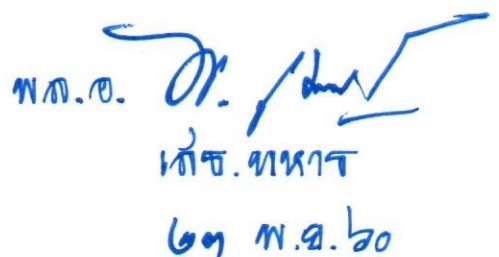 พล.อ.
เสธ.ทหาร
๒๓ พ.ย. ๖๐